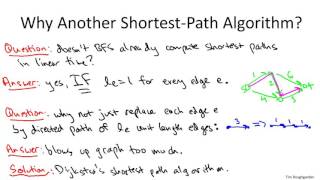 Why Another Shortest-Path Algorithm?
Question: doesn't BFS already compute shortest paths
in linear time?
Answer: yes, IF le = 1 for every edge e.
Question: why not just replace each edge e
by directed path of le unit length edges:
3 => 1 1 1
Answer: blows up graph too much.
Solution: Dijkstra's shortest path algorithm.
Tim Roughgarden